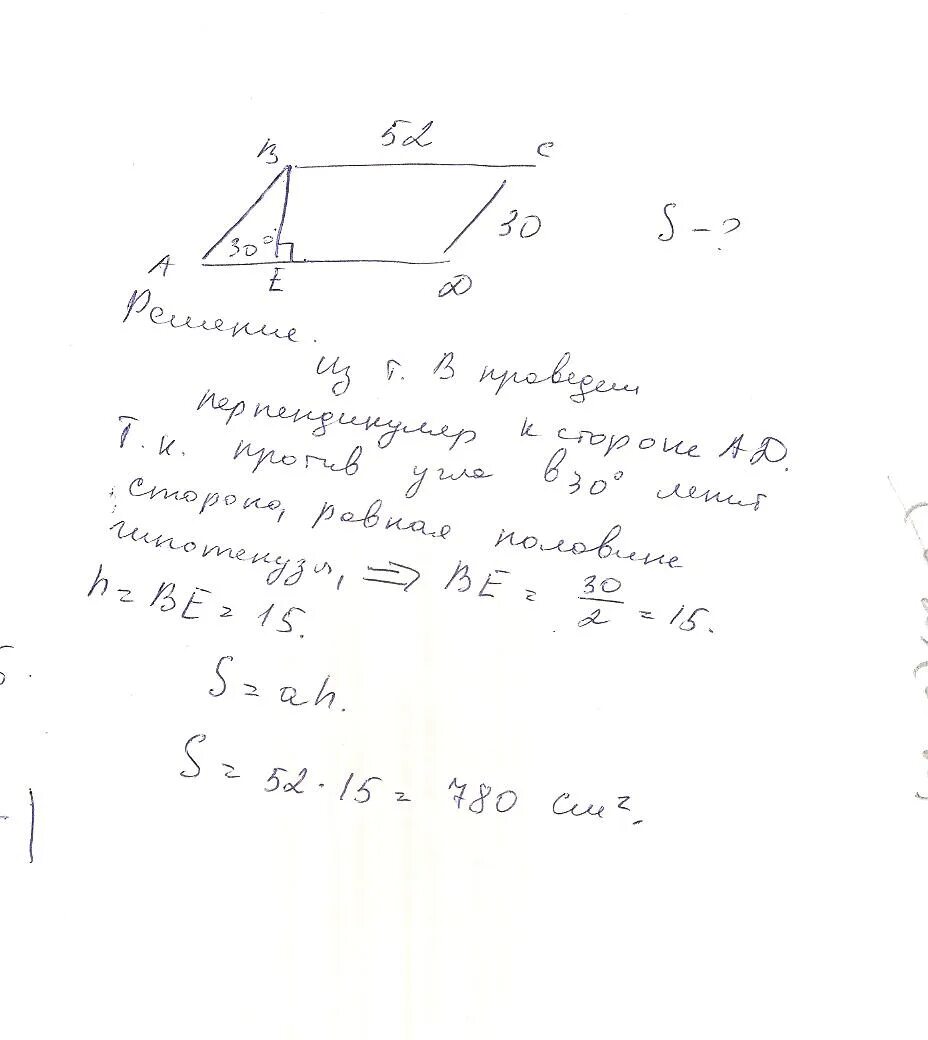 52
B
C
30°
30
S - ?
A
E
D
Решение.
Из т. B проведем
перпендикуляр к стороне AD.
Т.к. против угла в 30° лежит
сторона, равная половине
гипотенузы, => BE = 30/2 = 15.
h = BE = 15.
S = ah.
S = 52 · 15 = 780 см².